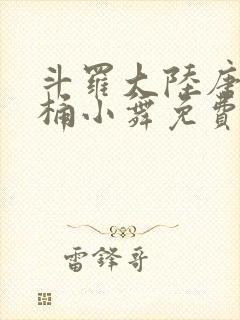 斗羅大陸唐
桶小舞免費
雷鋒哥